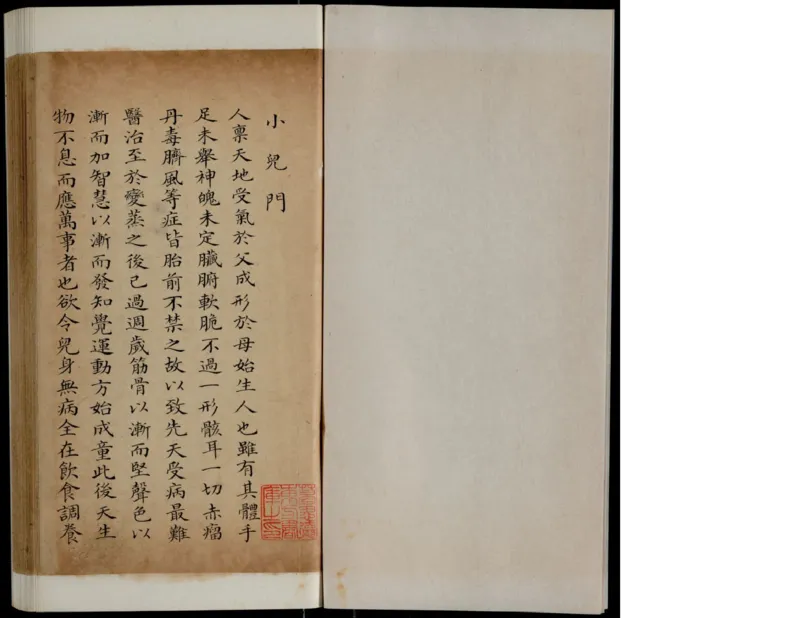 小兒門
人稟天地受氣於父成形於母始生人也雖有其體手
足未舉神魄未定臟腑軟脆不過一形骸耳一切赤瘤
丹毒臍風等症皆胎前不禁之故以致先天受病最難
醫治至於變蒸之後已過週歲筋骨以漸而堅聲色以
漸而加智慧以漸而發知覺運動方始成童此後天生
物不息而應萬事者也欲令兒身無病全在飲食調養